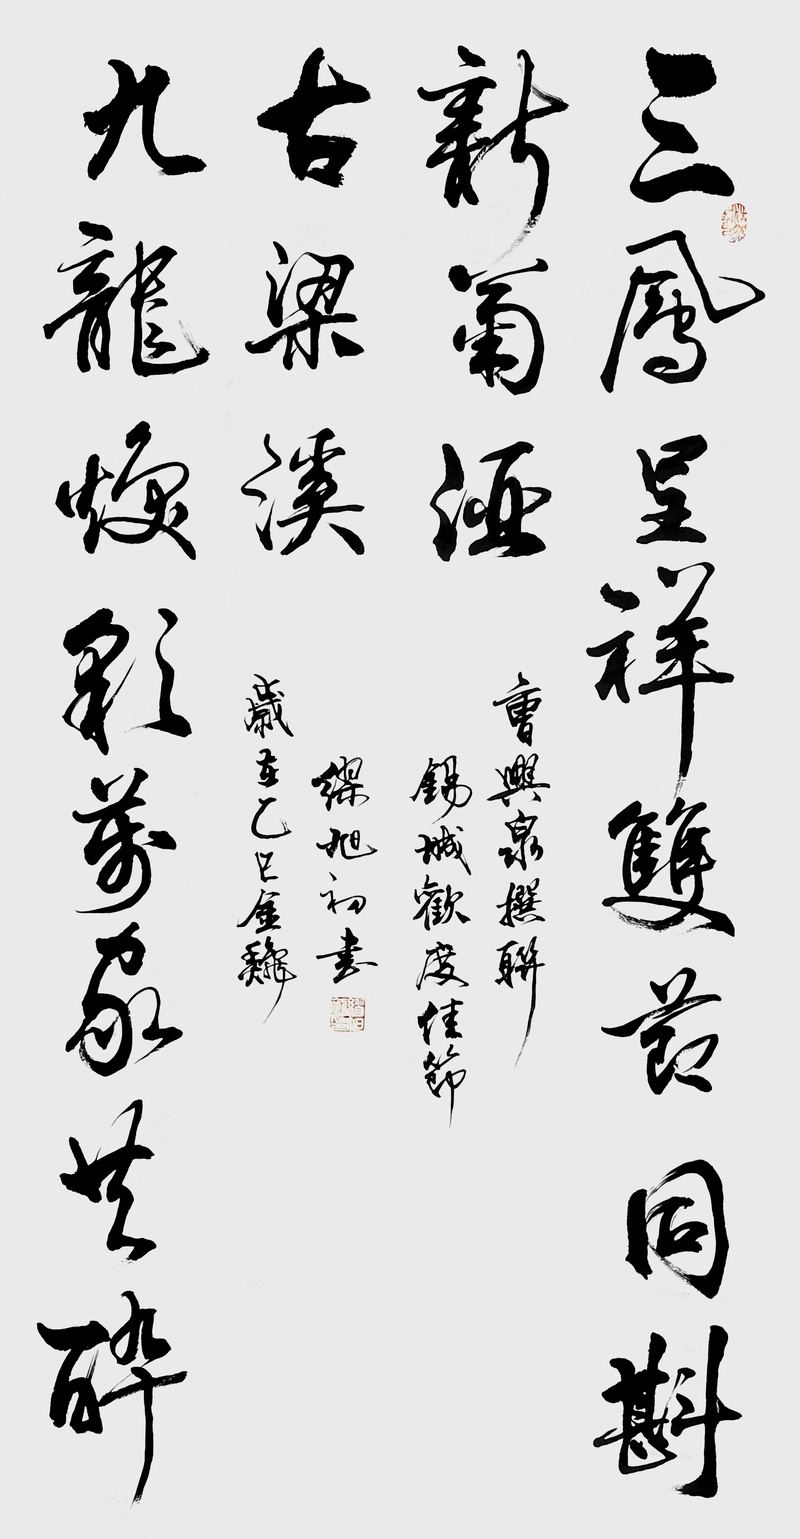 三鳳呈祥雙節同斟
新菊酒
曹興泉撰聯
錫城歡度佳節
九龍煥彩萬家共醉
古梁溪
歲在乙巳金龝
繆旭初書